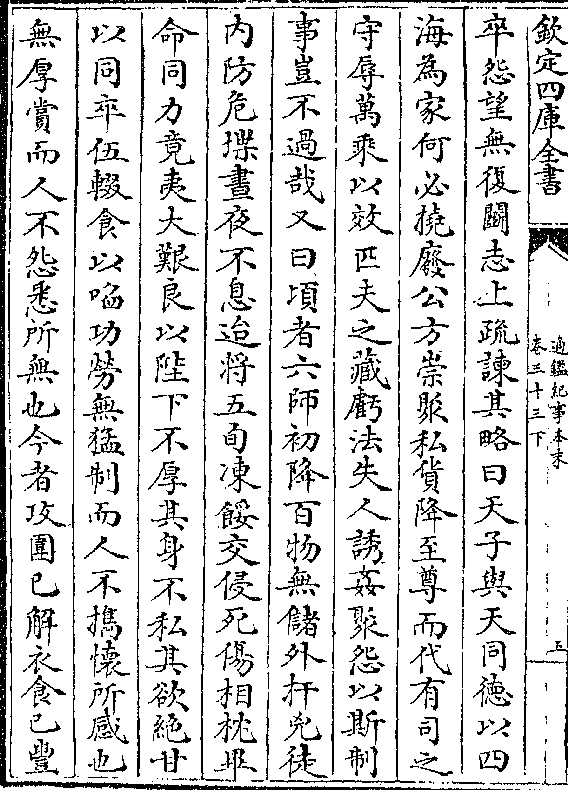 欽定四庫全書
通鑑紀事本末
卷三十三下
五
卒怨望無復鬬志上疏諫其略曰天子與天同德以四
海為家何必撓廢公方崇聚私貨降至尊而代有司之
守辱萬乘以效匹夫之藏虧法失人誘姦聚怨以斯制
事豈不過哉又曰頃者六師初降百物無儲外扞兇徒
内防危堞晝夜不息迨將五旬凍餒交侵死傷相枕畢
命同力竟夷大艱良以陛下不厚其身不私其欲絶甘
以同卒伍輟食以㗖功勞無猛制而人不擕懷所感也
無厚賞而人不怨悉所無也今者攻圍已解衣食已豐